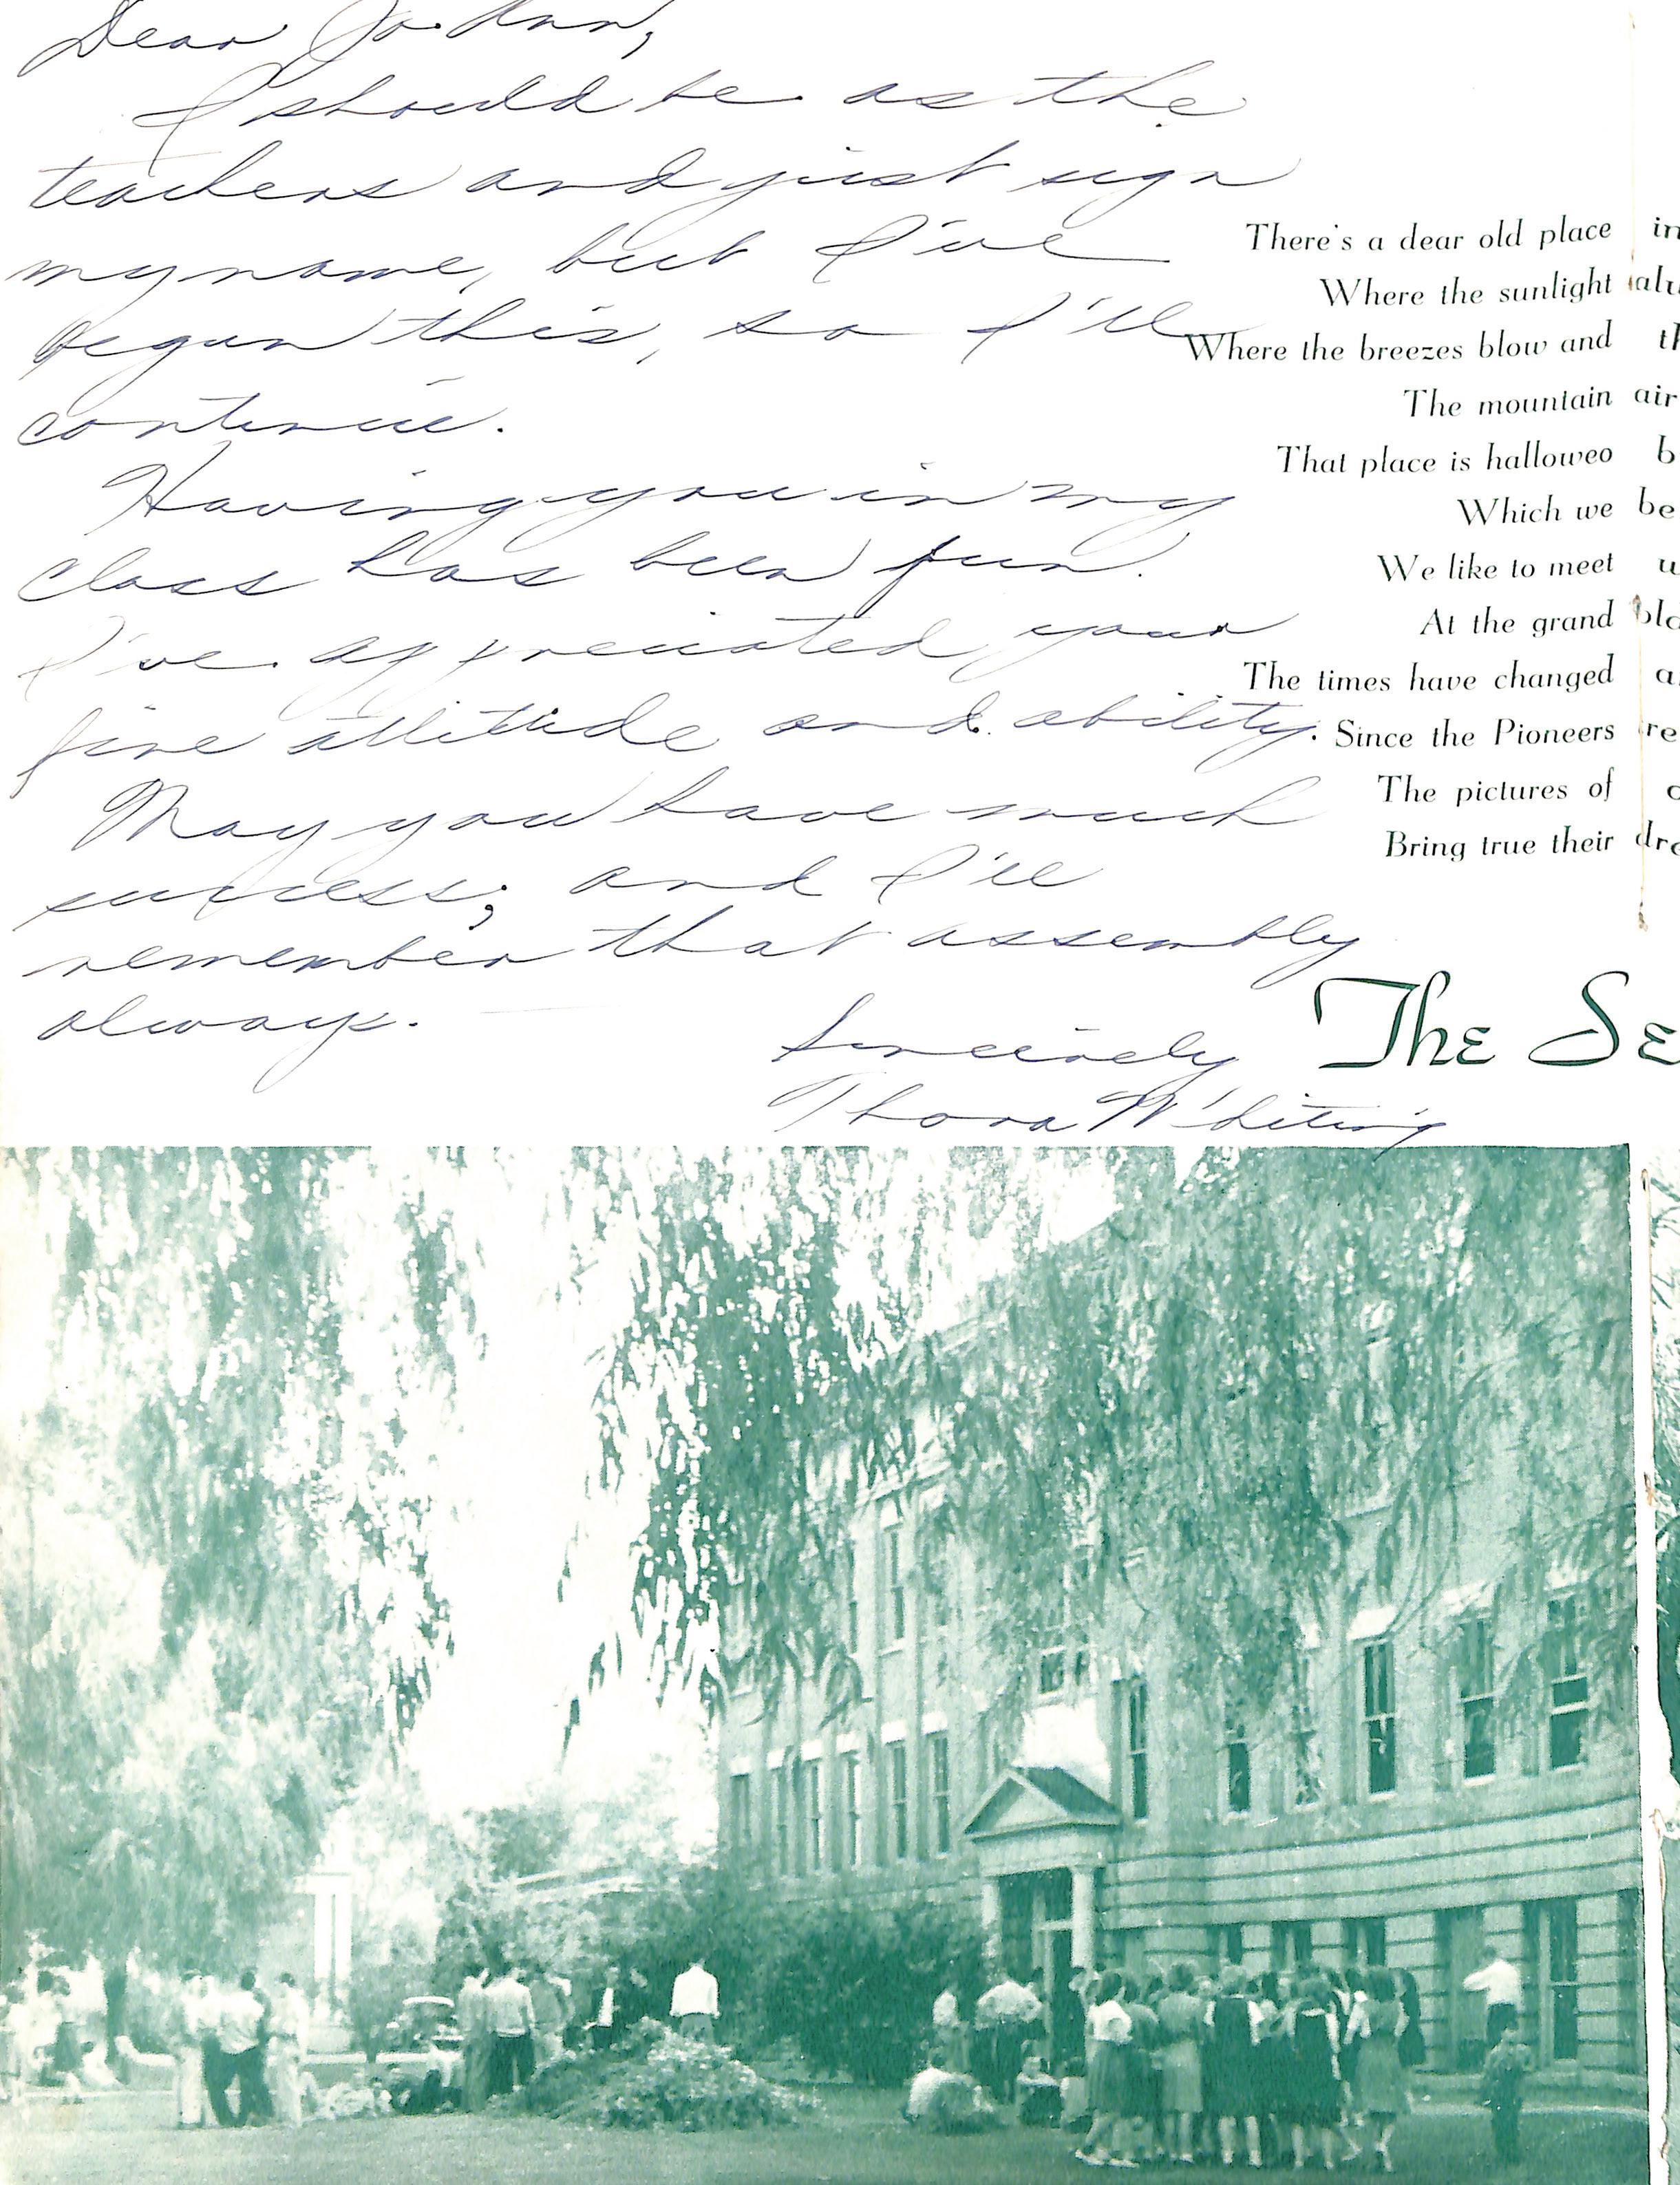 Dear Jo Ann,
I should be as the
teachers and just sign
my name, but I've
begun this, so I'll
continue.
Having you in my
class has been fun.
I've appreciated your
fine attitude and ability.
May you have much
success; and I'll
remember that assembly
always.
Sincerely
Thora Whiting
There's a dear old place in
Where the sunlight alw
Where the breezes blow and th
The mountain air
That place is halloweo b
Which we be
We like to meet w
At the grand old
The times have changed a
Since the Pioneers re
The pictures of
Bring true their dre
The Se